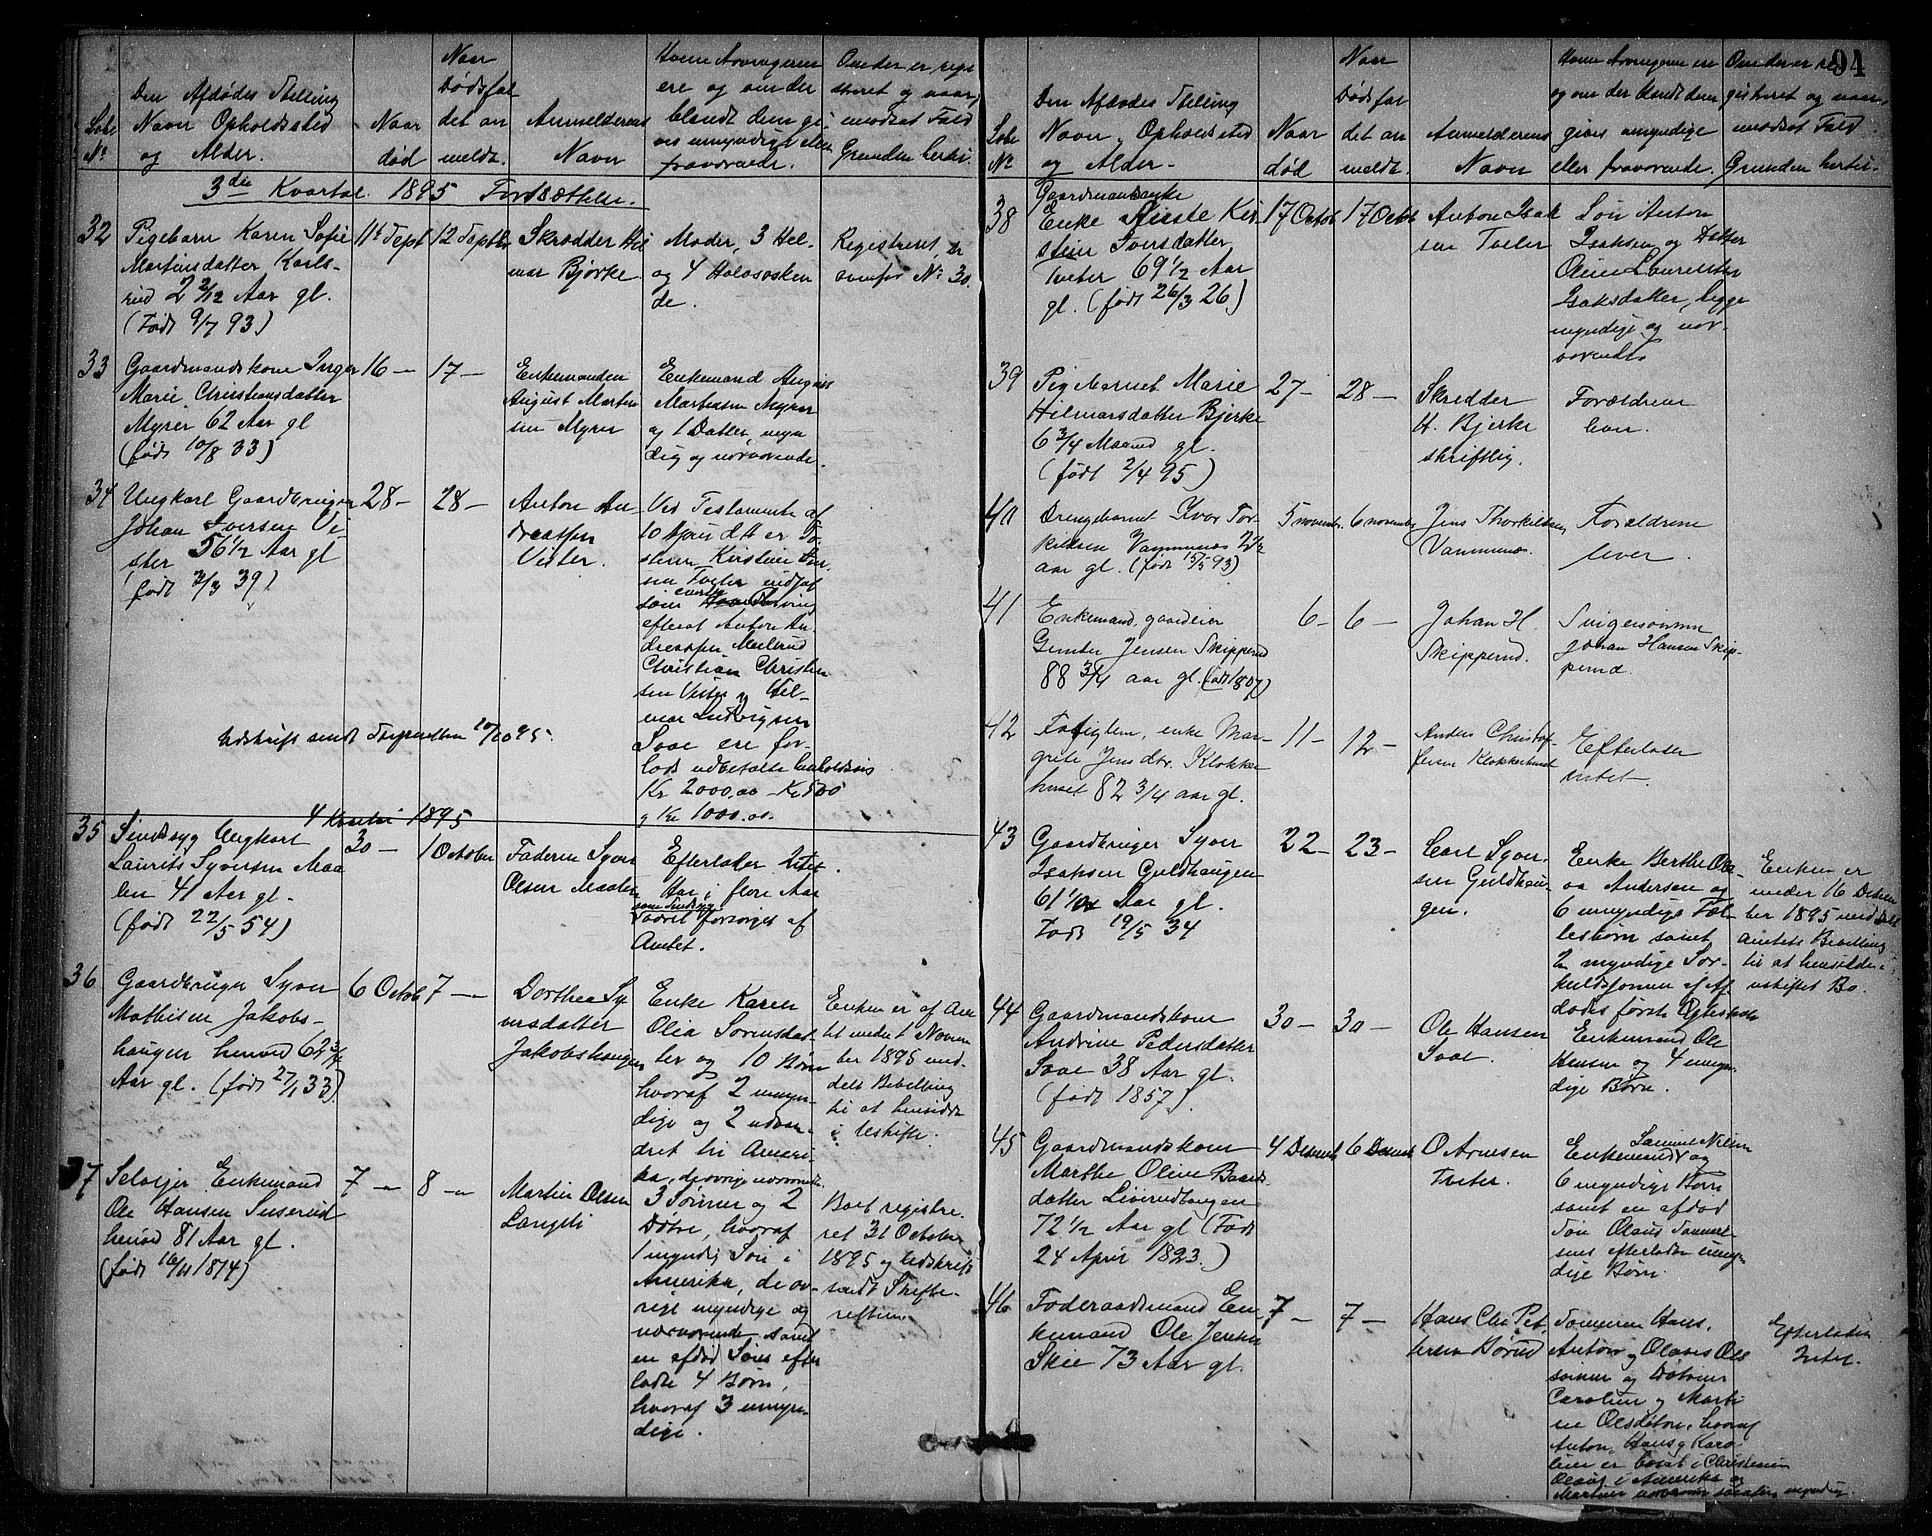 94
Løbe
No
Den Afdødes Stilling
Navn Opholdssted
og Alder.
Naar
død
Naar
Dødsfal
det an
meldt.
Anmelderens
Navn
Hvem Arvingerne
ere og om der
blandt dem gi
ves umyndige eller
fraværende.
Om der er regi
streret og naar,
modsat Fald
Grunden hertil.
3die Kvartal 1895 Fortsættelse.
32
Pigebarn Karen Sofie
Martinsdatter Karls-
rud 2 2/12 Aar gl.
(Født 9/7 93)
11te Sept
12 Septbr
Skrædder Hil
mar Bjerke
Moder, 3 Hel-
og 4 Halvsøsken
de.
Registreret, er
ovenfor No 30.
33
Gaardmandskone Inger
Marie Christiansdatter
Myrer 62 Aar gl
(født 10/8 33)
16 —
17 —
Enkemanden
August Martin
sen Myrer
Enkemand August
Martinsen Myrer
og 1 Datter, myn
dig og nærværende.
34
Ungkarl Gaardbruger
Johan Iversen Ve
ster 56 1/2 Aar gl
født 3/3 39)
28 —
28 —
Anton An
dreassen
Vester.
Ved Testamente af
10 April d A er Sø
steren Kirstine Iver
sen Tveter indsat
som eneste Arving
efterat Anton An
dreassen Meilrud
Christian Christian
sen Vester og Hil-
mar Ludvigsen
Saae ere for-
lods udbetalte henholdsvis
Kr 2000,00 - Kr 500
og Kr 1000.00.
Udskrift sendt Sorenskriveren 10/10 95.
4 Kvartal 1895
35
Sindssyg Ungkarl
Laurits Syversen Maa
len 41 Aar gl.
(født 22/5 54)
30 —
1 October
Faderen Syver
Olsen Maalen
Efterlader Intet.
Har i flere Aar
som Sindssyg
været forsørget af
Amtet.
36
Gaardbruger Syver
Mathisen Jakobs-
haugen henved 62 3/4
Aar gl. (født 27/1 33)
6 Octob
7 —
Dorthea Sy
versdatter
Jakobshaugen
Enke Karen
Olia Sørensdat
ter og 10 Børn
hvoraf 2 umyn
dige og 2 udvan
dret til Ameri
ka, de øvrige nærværende
Enken er af Am
tet under 1 Novem
ber 1895 med
delt Bevilling
til at hensidde
i uskifte.
37
Selveier Enkemand
Ole Hansen Suserud
henved 81 Aar gl.
(født 16/11 1814)
7 —
8 —
Martin Olsen
Langeli
3 Sønner og 2
Døtre, hvoraf
1 myndig Søn i
Amerika, de øv-
rige myndige og
nærværende samt
en afdød Søns efter
ladte 4 Børn,
hvoraf 3 umyn
dige.
Boet registre-
ret 31 October
1895 og Udskrift
sendt Skifte-
retten
Løbe
No
Den Afdødes Stilling
Navn, Opholdssted
og Alder -
Naar
død
Naar
Dødsfal
det an
meldt.
Anmelderens
Navn
Hvem Arvingerne ere
og om der blandt dem
gives umyndige
eller fraværende.
Om der er re
gistreret og naar,
modsat Fald
Grunden hertil.
38
Gaardmandsenke
Enke Kir
stine Iversdatter
Tveter 69 1/2 Aar
gl. (født 26/3 26)
17 Octob
17 Octob
Anton Isak
sen Tveter
Søn Anton
Isaksen og Datter
Oline Laurentse
Isaksdatter, begge
myndige og nær-
værende.
39
Pigebarnet Marie
Hilmarsdatter Bjerke
6 3/4 Maaned gl.
(født 2/4 95)
27 —
28 —
Skrædder
H. Bjerke
skriftlig.
Forældrene
lever.
40
Drengebarnet Ivar Tor
kildsen Vammenæs 2 1/2
aar gl. (født 15/5 93)
5 novembr.
6 november
Jens Thorkildsen
Vammenæs.
Forældrene
lever
41
Enkemand, gaardeier
Gunder Jensen Skipperud
88 3/4 aar gl. (født 1807)
6 —
6 —
Johan H.
Skipperud.
Svigersønnen
Johan Hansen Skip-
perud.
42
Fattiglem, enke Mar-
grete Jensdtr. Klokker
huset 82 3/4 aar gl.
11 —
12 —
Anders Christof
fersen Klokkerhuset
Efterlader
intet.
43
Gaardbruger Syver
Isaksen Guldhaugen
61 1/2 Aar gl.
Født 19/5 34
22 —
23 —
Carl Syver-
sen Guldhau-
gen.
Enke Berthe Ole
aa Andersen og
6 umyndige Fæl
lesbørn samt
2 myndige Sør-
kuldsønner af Af
dødes første Ægteskab
Enken er
under 16 Decem
ber 1895 med delt
Amtets Bevilling
til at hensidde i
uskiftet Bo.
44
Gaardmandskone
Andrine Pedersdatter
Saae 38 Aar gl.
(født 1857).
30 —
30 —
Ole Hansen
Saae.
Enkemand Ole
Hansen og 4 umyn
dige Børn.
45
Gaardmandskone
Marthe Oline Baards
datter Liverudhaugen
72 1/2 Aar gl (Født
24 April 1823.)
4 Decembr
6 Decembr
O Arnesen
Tveter.
Enkemand og
6 myndige Børn
samt en afdød
Søn Olaus Samuel
sens efterladte umyn
dige Børn.
46
Føderaadsmand En
kemand Ole Jensen
Skie 73 Aar gl.
7 —
7 —
Hans Chr Pet
tersen Børud
Sønnerne Hans,
Anton og Olaves Ols
sønner og Døtrene
Caroline og Marti
ne Olsdøtre, hvoraf
Anton, Hans og Karo
line er bosat i Christiania
Olaus i Amerika og
Martine nærværende samtlige myndig.
Efterlader
Intet.